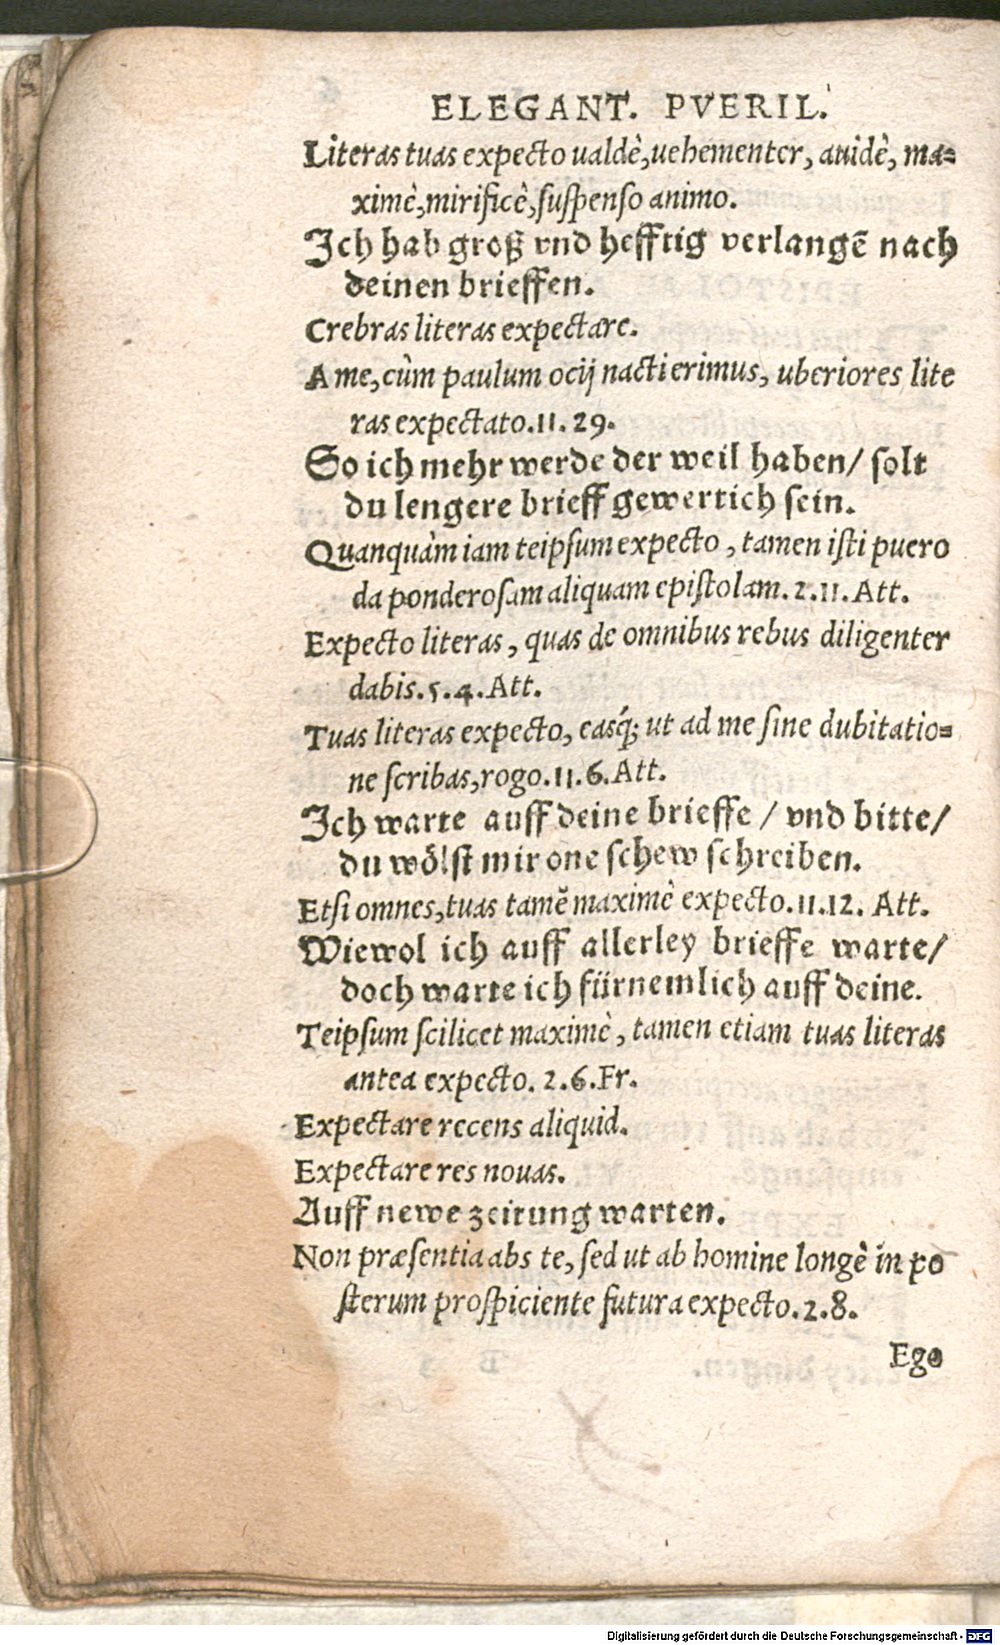 ELEGANT. PVERIL.
Literas tuas expecto ualdè, uehementer, auidè, ma=
ximè, mirificè, suspenso animo.
Ich hab groß vnd hefftig verlangē nach
deinen brieffen.
Crebras literas expectare.
A me, cùm paulum ocij nacti erimus, uberiores lite
ras expectato. 11. 29.
So ich mehr werde der weil haben/ solt
du lengere brieff gewertich sein.
Quanquàm iam teipsum expecto, tamen isti puero
da ponderosam aliquam epistolam. 2. 11. Att.
Expecto literas, quas de omnibus rebus diligenter
dabis. 5. 4. Att.
Tuas literas expecto, easq́; ut ad me sine dubitatio=
ne scribas, rogo. 11. 6. Att.
Ich warte auff deine brieffe / vnd bitte/
du wölst mir one schew schreiben.
Etsi omnes, tuas tamē maximè expecto. 11. 12. Att.
Wiewol ich auff allerley brieffe warte/
doch warte ich fürnemlich auff deine.
Teipsum scilicet maximè, tamen etiam tuas literas
antea expecto. 2. 6. Fr.
Expectare recens aliquid.
Expectare res nouas.
Auff newe zeitung warten.
Non præsentia abs te, sed ut ab homine longè in po
sterum prospiciente futura expecto. 2. 8.
Ego
Digitalisierung gefördert durch die Deutsche Forschungsgemeinschaft - DFG